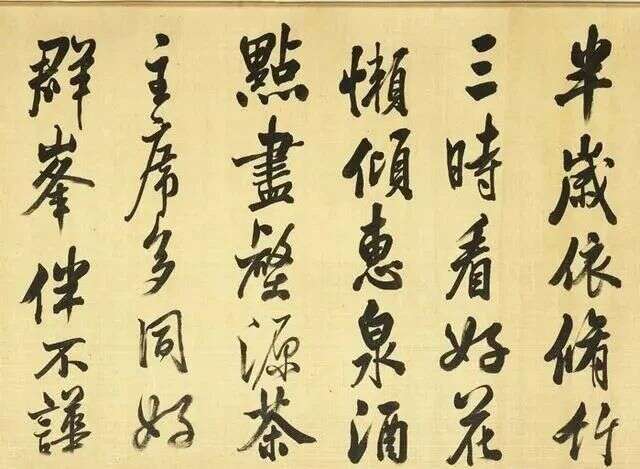 半歲依脩竹
三時看好花
懶傾惠泉酒
點盡壑源茶
主席多同好
群峯伴不譁